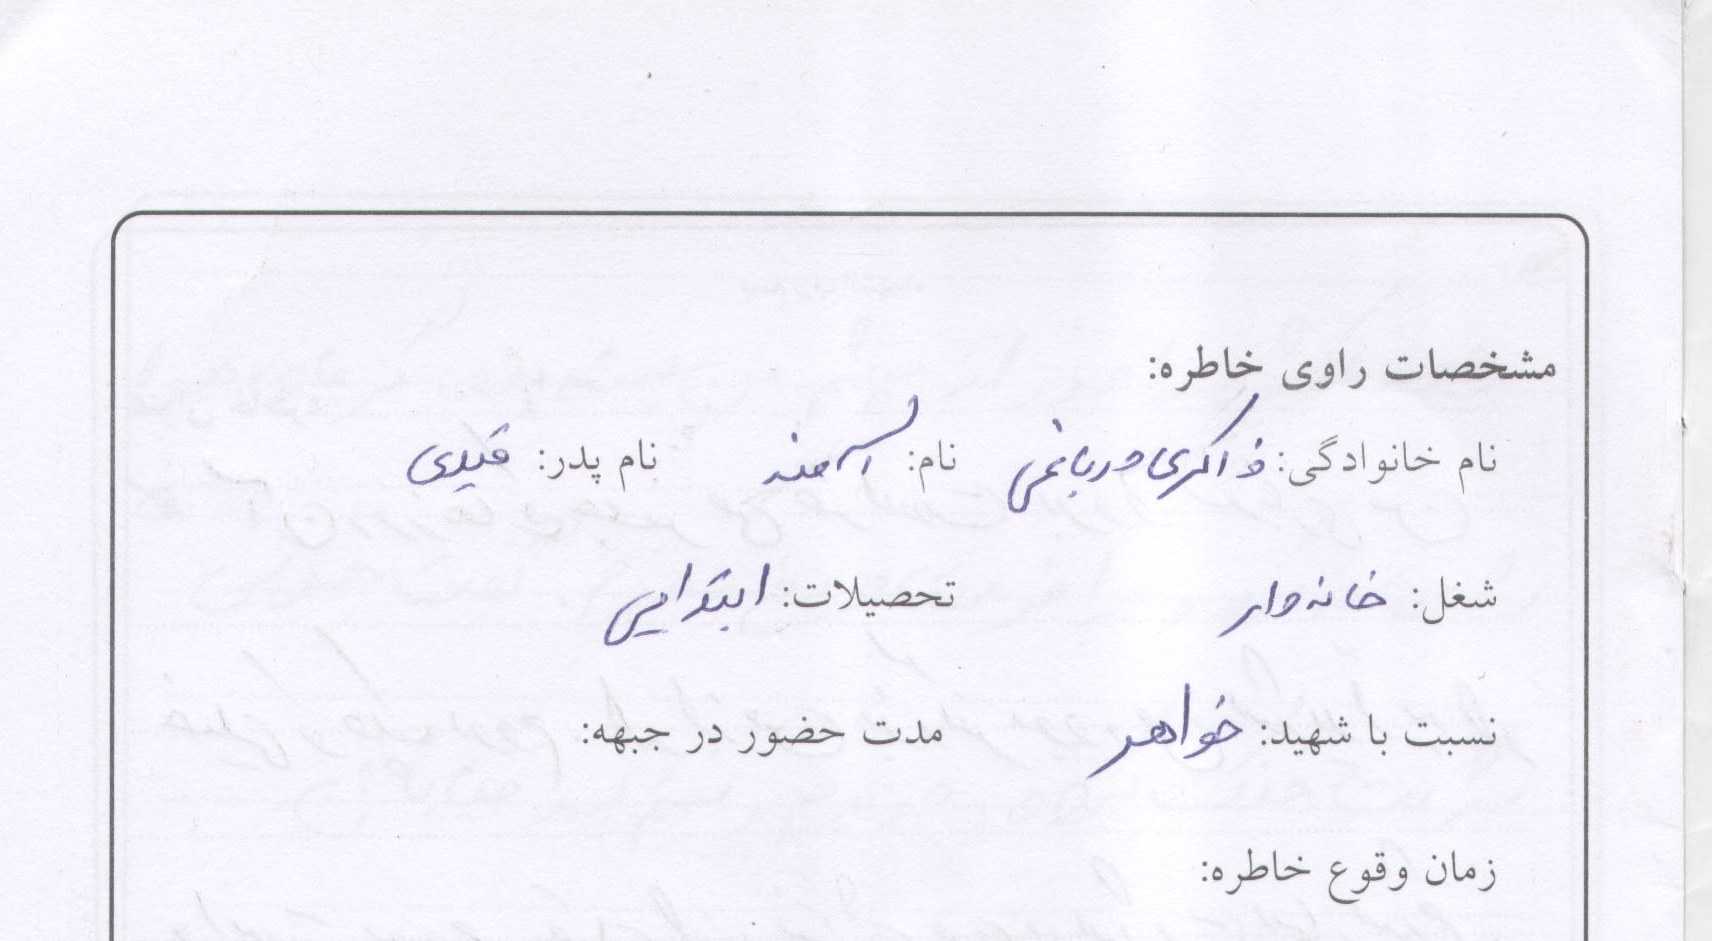 مشخصات راوی خاطره:
نام خانوادگی: ذاکری درباغی نام: آمنه نام پدر:
شغل: خانه دار تحصیلات: ابتدایی
نسبت با شهید: خواهر مدت حضور در جبهه:
زمان وقوع خاطره: